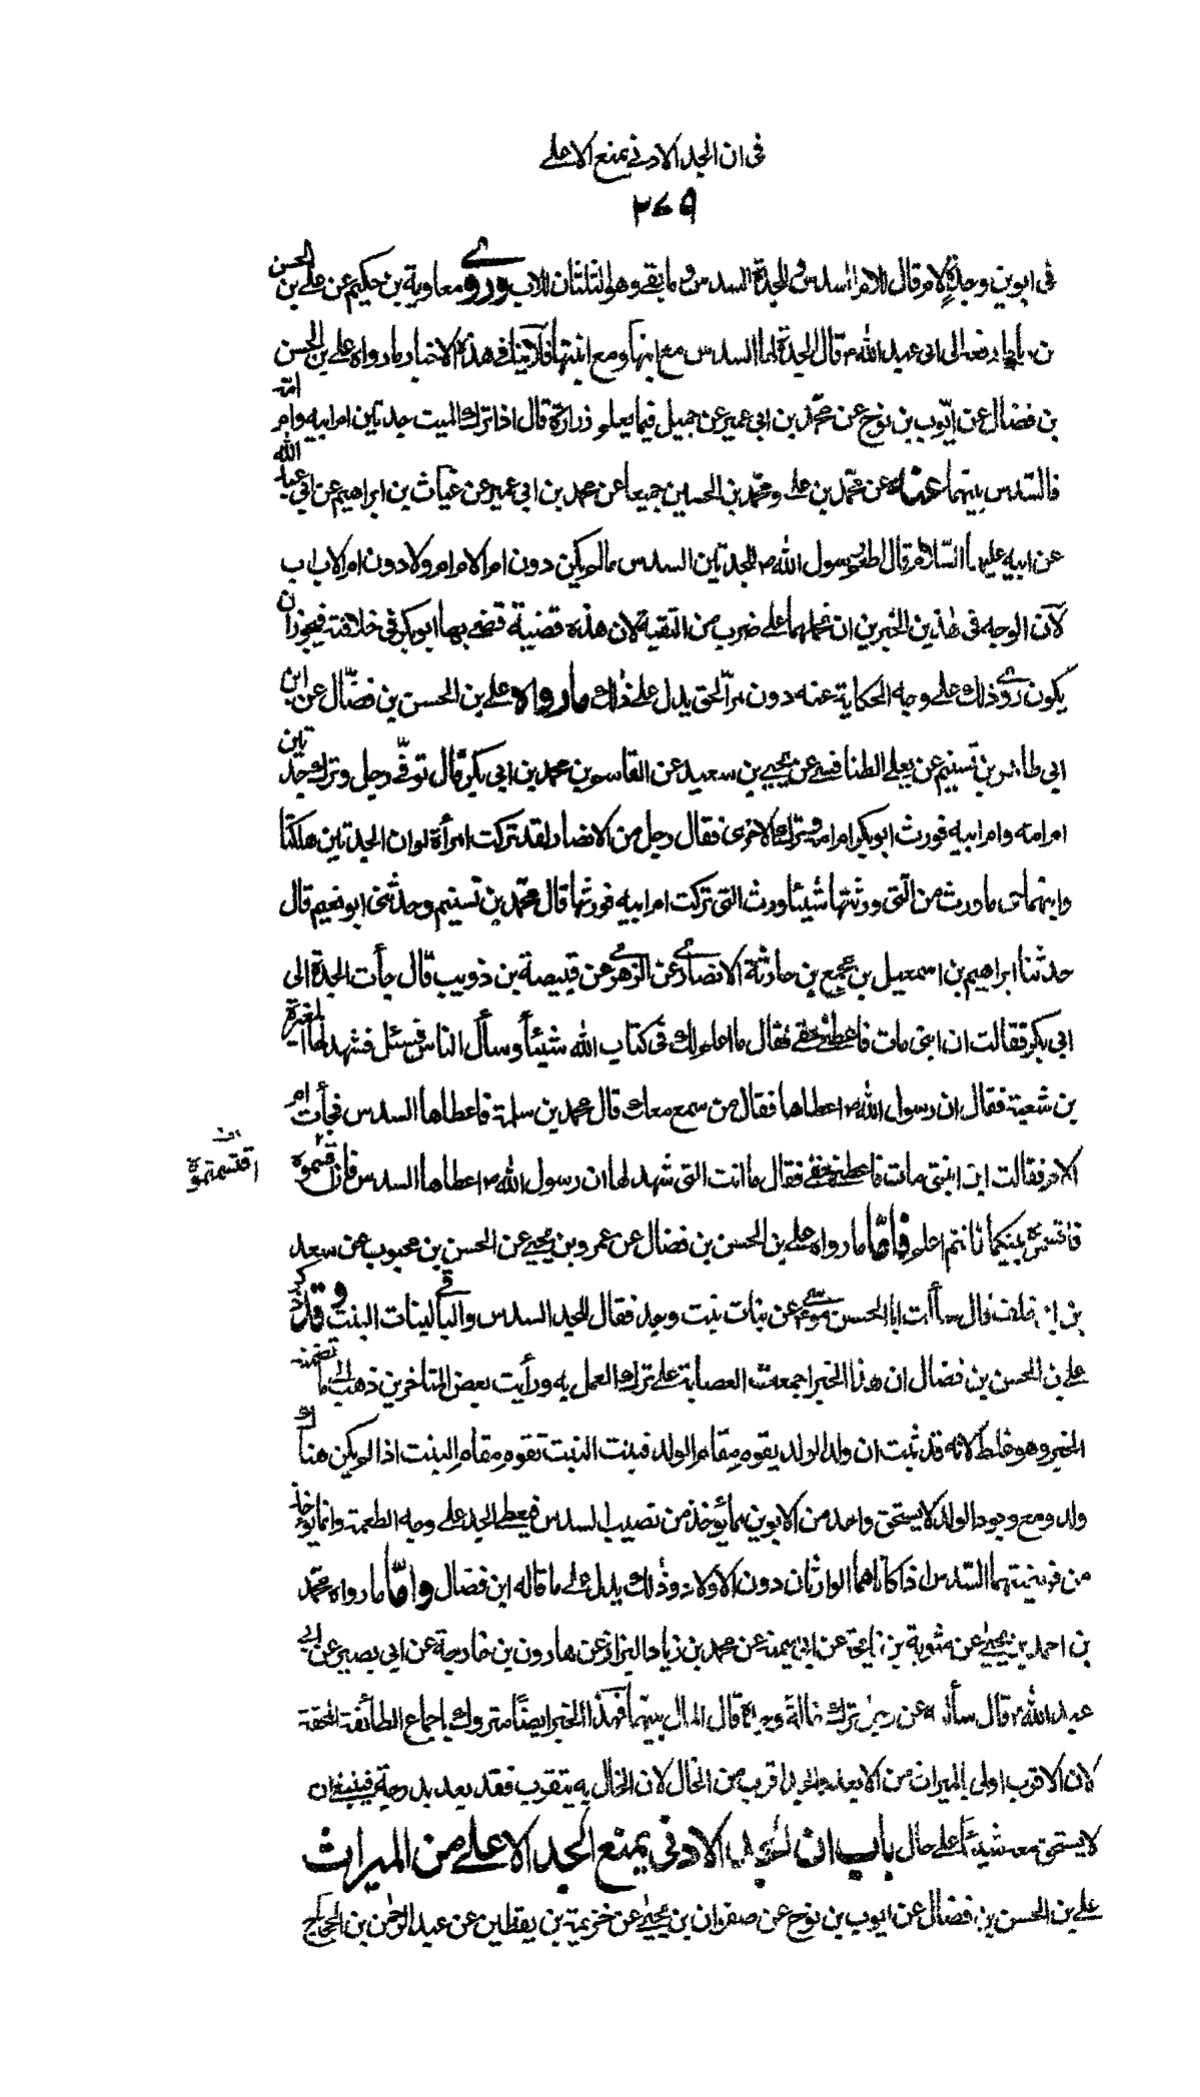 في ان الجد الادنى يمنع الاعلى
٢٧٩
في ابوين وجدة لام قال للام السدس وللجدة السدس وما بقي وهو الثلثان للاب وروى معاوية بن حكيم عن علي بن الحسن
بن رباط رفعه الى ابي عبد الله ع قال الجدة لها السدس مع ابنها ومع ابنتها فلا ينافي هذه الاخبار ما رواه علي بن الحسن
بن فضال عن ايوب بن نوح عن محمد بن ابي عمير عن جميل فيما يعلم زرارة قال اذا ترك الميت جدتين ام ابيه وام امه
فالسدس بينهما عنه عن محمد بن علي ومحمد بن الحسين جميعا عن محمد بن ابي عمير عن غياث بن ابراهيم عن ابي عبد الله
عن ابيه عليهما السلام قال اطعم رسول الله ص الجدتين السدس ما لم يكن دون ام الام ام ولا دون ام الاب اب
لآن الوجه في هذين الخبرين ان نحملهما على ضرب من التقية لان هذه قضية قضى بها ابو بكر في خلافته فيجوز ان
يكون روى ذلك على وجه الحكاية عنه دون مر الحق يدل على ذلك ما رواه علي بن الحسن بن فضال عن ابن
ابي طاهر بن تسنيم عن يعلى الطنافسي عن يحيى بن سعيد عن القاسم بن محمد بن ابي بكر قال توفى رجل وترك جدتين
ام امه وام ابيه فورث ابو بكر ام امه وترك الاخرى فقال رجل من الانصار لقد تركت امرأة لو ان الجدتين هلكتا
وابنهما حى ما ورث من التي ورثتها شيئا وورث التي تركت ام ابيه فورثها قال محمد بن تسنيم وحدثني ابو نعيم قال
حدثنا ابراهيم بن اسمعيل بن مجمع بن حارثة الانصارى عن الزهرى عن قبيصة بن ذويب قال جأت الجدة الى
ابي بكر فقالت ان ابني مات فاعطني حقي فقال ما اعلم لك في كتاب الله شيئأ وسأل الناس فسئل فشهد لها المغيرة
بن شعبة فقال ان رسول الله ص اعطاها فقال من سمع معك قال محمد بن سلمة فاعطاها السدس فجأت ام
الام فقالت ابن ابنتي مات فاعطني حقي فقال ما انت التي شهد لها ان رسول الله ص اعطاها السدس فان قسموه
اقتسمتموه
فاقتسموه بينكما فانتم اعلم فاما ما رواه علي بن الحسن بن فضال عن عمرو بن يحيى عن الحسن بن محبوب عن سعد
بن ابى خلف قال سألت ابا الحسن موسى ع عن بنات بنت وجد فقال للجد السدس والباقى لبنات البنت وقد ذكر
علي بن الحسن بن فضال ان هذا الخبر اجمعت العصابة على ترك العمل به ورأيت بعض المتاخرين ذهب الى ما تضمنه
الخبر وهو غلط لانه قد ثبت ان ولد الولد يقوم مقام الولد فبنت البنت تقوم مقام البنت اذا لم يكن هناك
ولد ومع وجود الولد لا يستحق واحد من الابوين ما يؤخذ من نصيب السدس فيعطى الجد على وجه الطعمة وانما يؤخذ
من فريضتهما السدس اذا كانا هما الوارثان دون الاولاد وذلك يدل على ما قاله ابن فضال واما ما رواه محمد
بن احمد بن يحيى عن مثوبة بن نايحة عن ابى سمينة عن محمد بن زياد البزاز عن هارون بن خارجة عن ابي بصير عن ابي
عبد الله ع قال سألته عن رجل ترك خالة وجدة قال المال بينهما فهذا الخبر ايضا متروك باجماع الطائفة المحقة
لان الاقرب اولى بالميراث من الابعد والجد اقرب من الخال لان الخال به يتقرب فقد بعد بدرجة فينبغي ان
لا يستحق معه شيئا على حال باب ان الجد الادنى يمنع الجد الاعلى من الميراث
علي بن الحسن بن فضال عن ايوب بن نوح عن صفوان بن يحيى عن خزيمة بن يقطين عن عبد الرحمن بن الحجاج